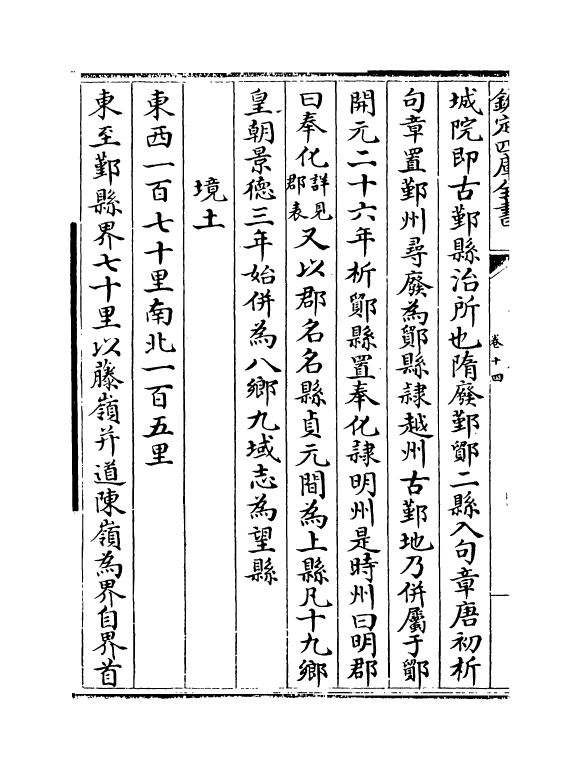 欽定四庫全書
卷十四
城院即古鄞縣治所也隋廢鄞鄮二縣入句章唐初析
句章置鄞州尋廢為鄮縣隷越州古鄞地乃併屬于鄮
開元二十六年析鄮縣置奉化隷明州是時州曰明郡
曰奉化詳見郡表又以郡名名縣貞元間為上縣凡十九鄉
皇朝景德三年始併為八鄉九域志為望縣
境土
東西一百七十里南北一百五里
東至鄞縣界七十里以藤嶺并道陳嶺為界自界首